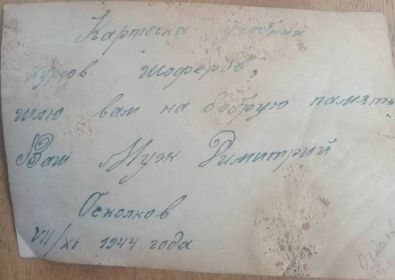 Карточка учебных
курсов шоферов,
шлю вам на добрую память
Ваш Муж Димитрий
Осколков
VII/XI 1944 года